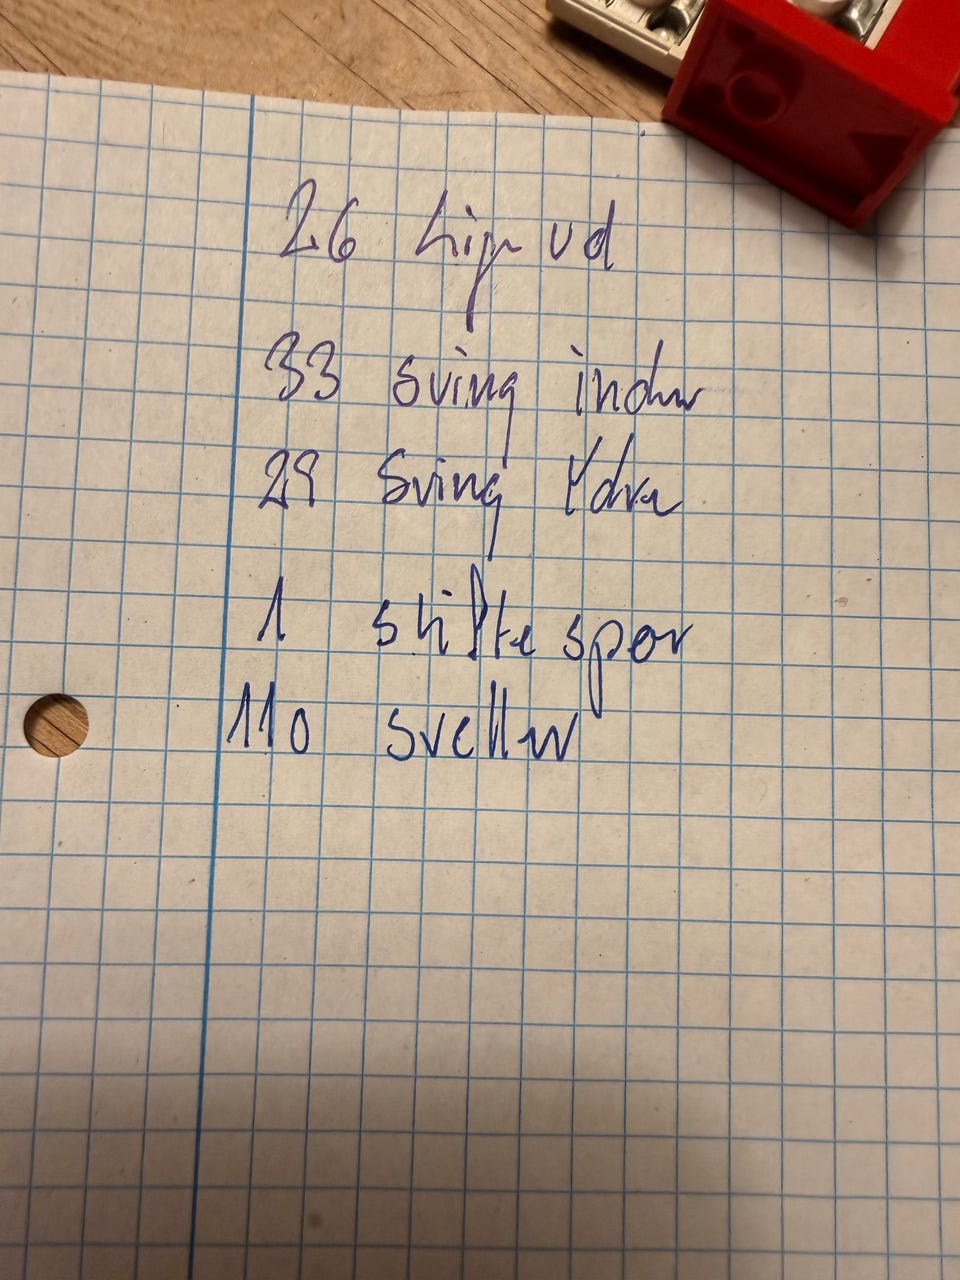 26 ligeud
33 sving indre
29 Sving Ydre
1 skifte spor
110 sveller